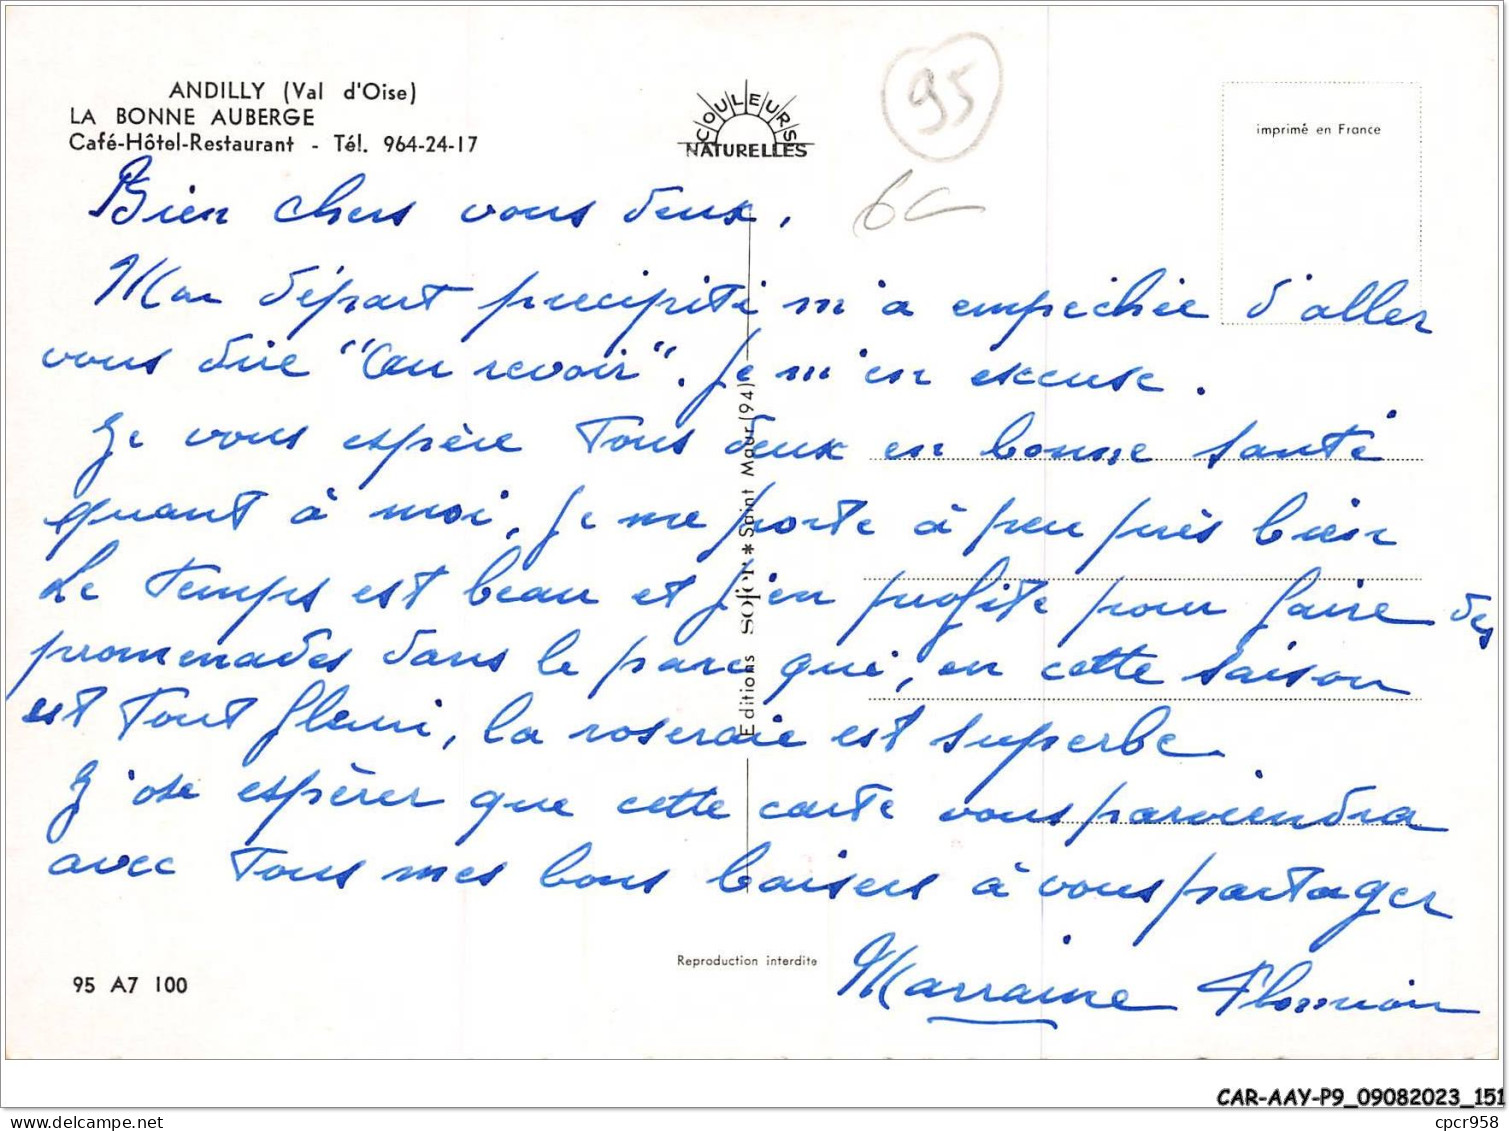 ANDILLY (Val d'Oise)
LA BONNE AUBERGE
Café-Hôtel-Restaurant - Tél. 964-24-17
COULEURS
NATURELLES
95
6€
imprimé en France
Bien chers vous deux,
Mon départ précipité m'a empêchée d'aller
vous dire "au revoir". Je m'en excuse.
Je vous espère tous deux en bonne santé
quant à moi, je me porte à peu près bien
Le temps est beau et j'en profite pour faire des
promenades dans le parc qui, en cette saison
est tout fleuri, la roseraie est superbe.
J'ose espérer que cette carte vous parviendra
avec tous mes bons baisers à vous partager
Marraine
Editions sofer * Saint Maur (94)
Reproduction interdite
95 A7 100
CAR-AAY-P9_09082023_151
www.delcampe.net
cpcr958